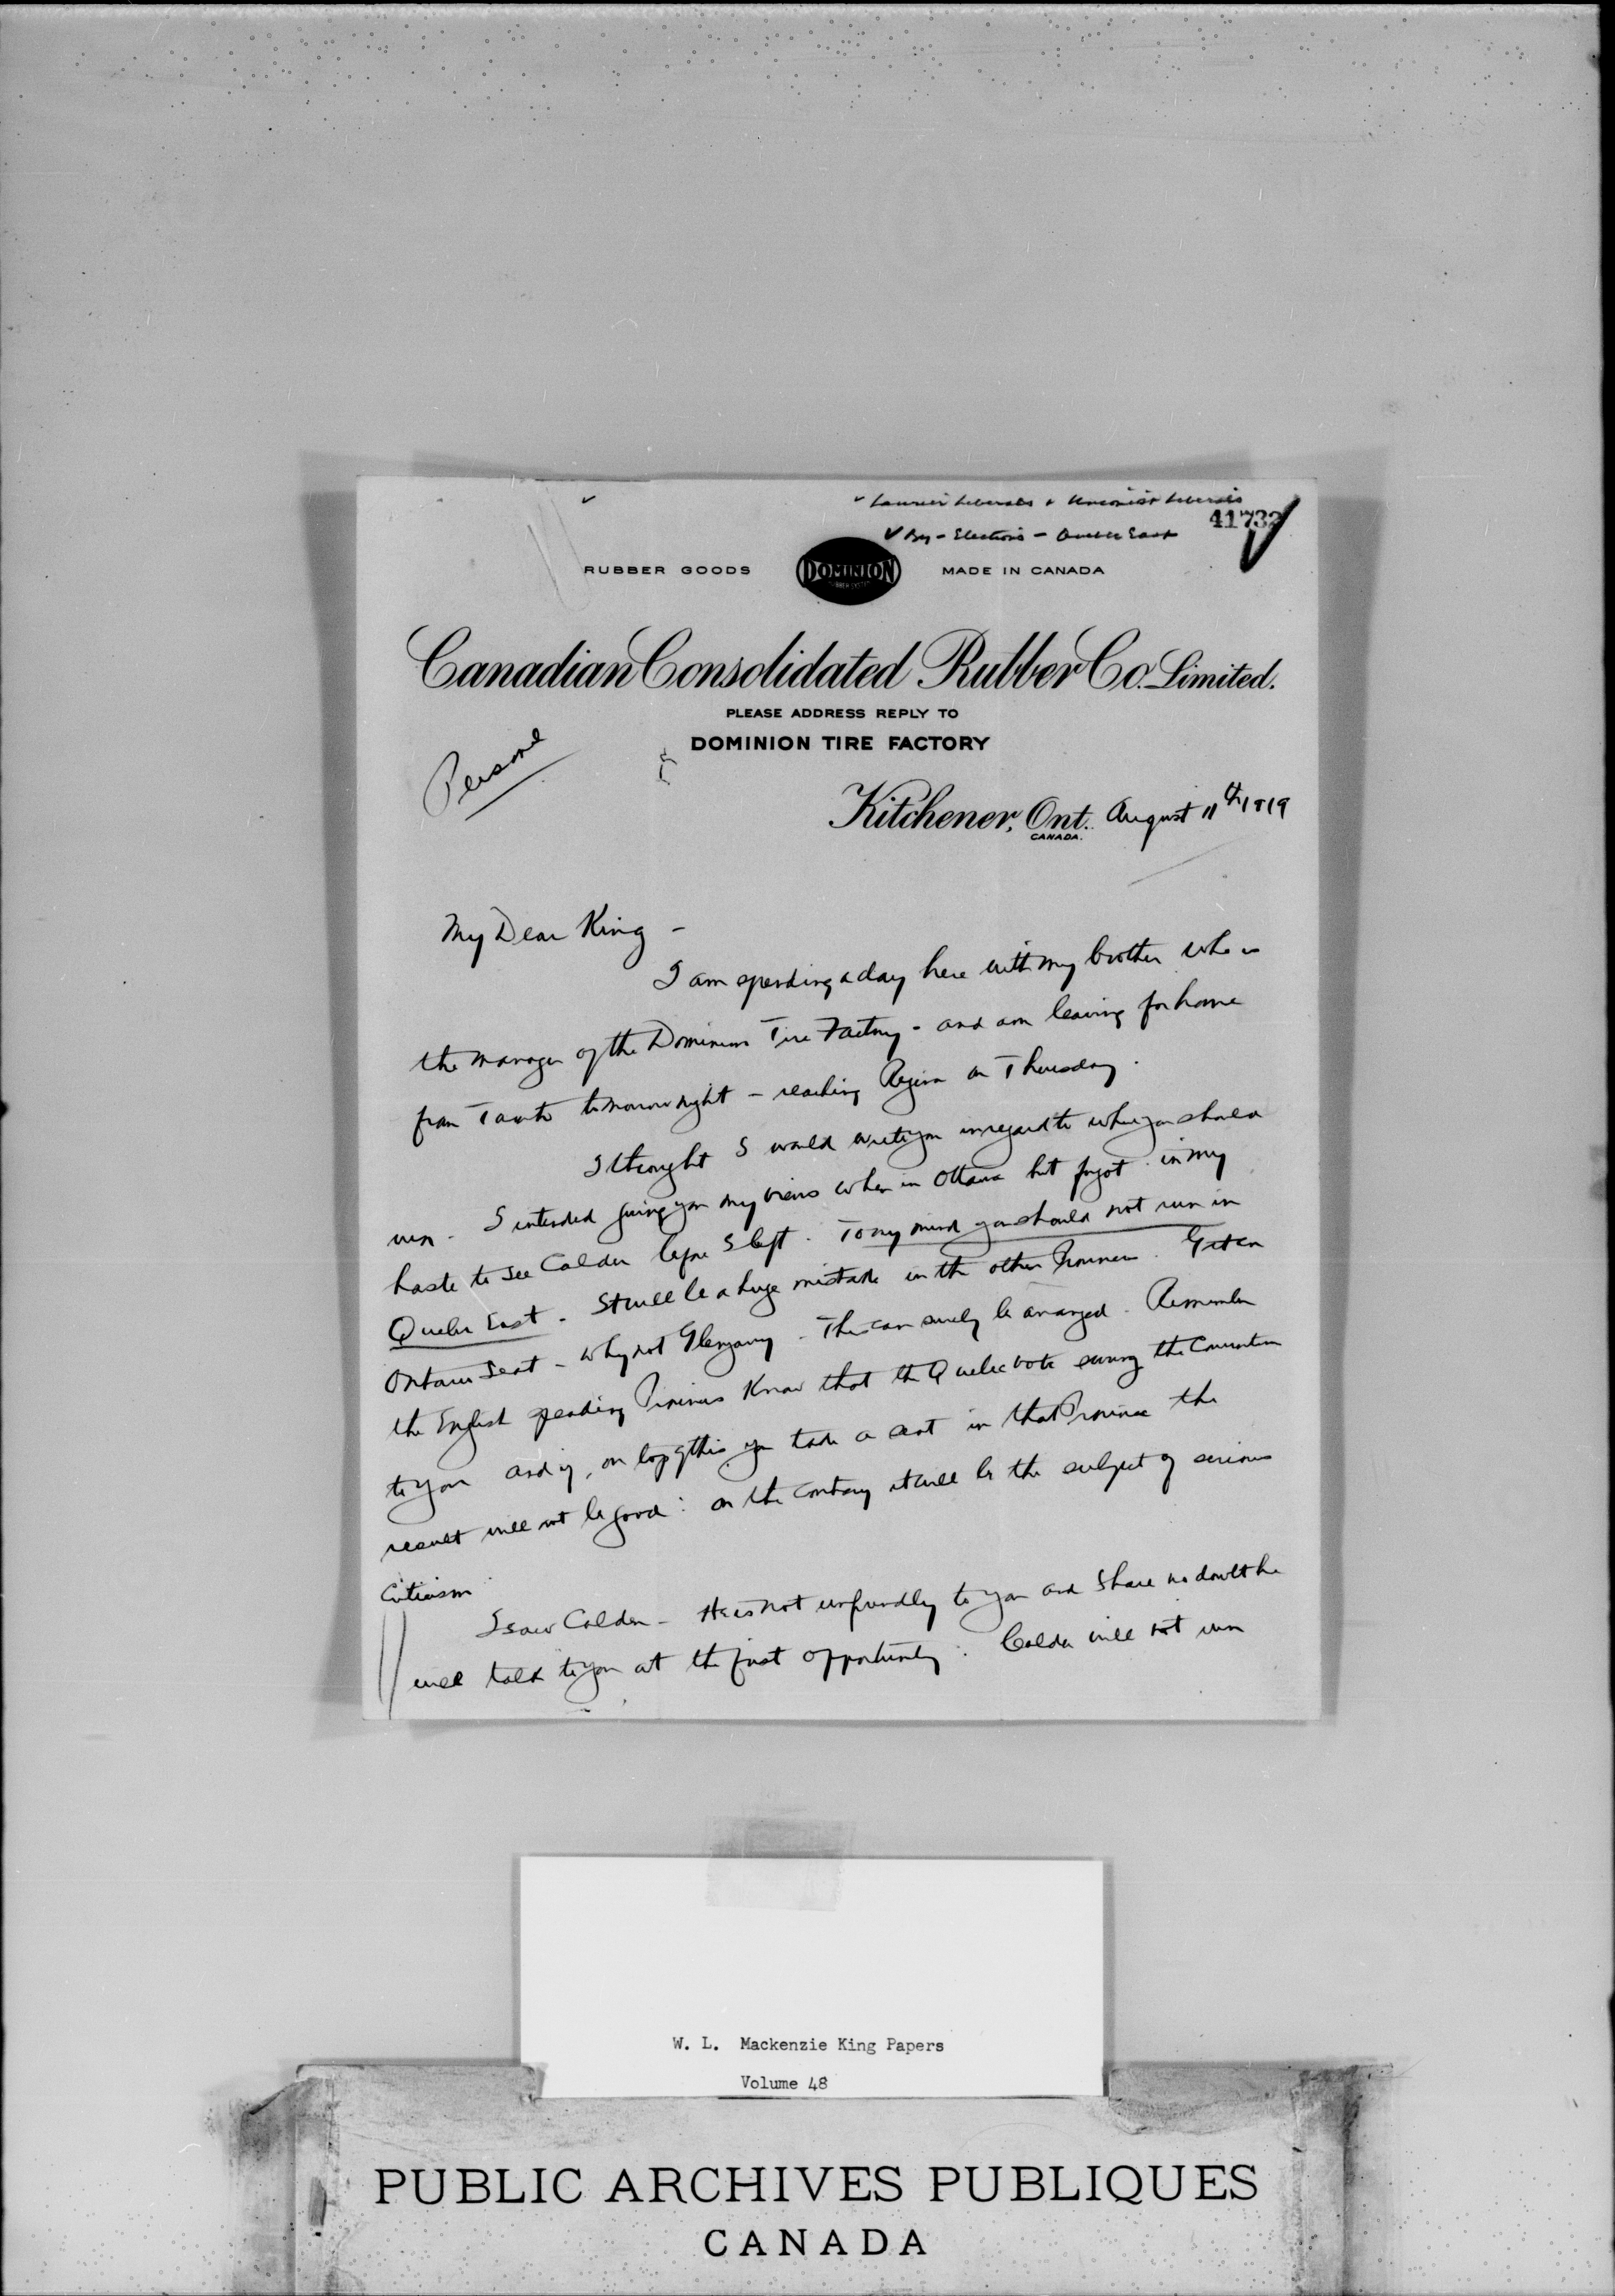 ✓ ✓ Laurier Liberals & Unionist Liberals
41732
✓ By-Elections - Quebec East
RUBBER GOODS DOMINION MADE IN CANADA
Canadian Consolidated Rubber Co. Limited.
PLEASE ADDRESS REPLY TO
DOMINION TIRE FACTORY
Personal
Kitchener, Ont. August 11th 1919
CANADA.
My Dear King -
I am spending a day here with my brother who is
the manager of the Dominion Tire Factory - and am leaving for home
from Toronto tomorrow night - reaching Regina on Thursday.
I thought I would write you in regard to where you should
run. I intended giving you my views when in Ottawa but forgot in my
haste to see Calder before I left. To my mind you should not run in
Quebec East. It will be a huge mistake in the other Provinces. Get an
Ontario seat - why not Glengarry. This can surely be arranged. Remember
the English speaking Provinces know that the Quebec vote swung the Convention
to you and if, on top of this you take a seat in that Province the
result will not be good: on the contrary it will be the subject of serious
criticism.
I saw Calder - He is not unfriendly to you and I have no doubt he
will talk to you at the first opportunity. Calder will not run
W. L. Mackenzie King Papers
Volume 48
PUBLIC ARCHIVES PUBLIQUES
CANADA